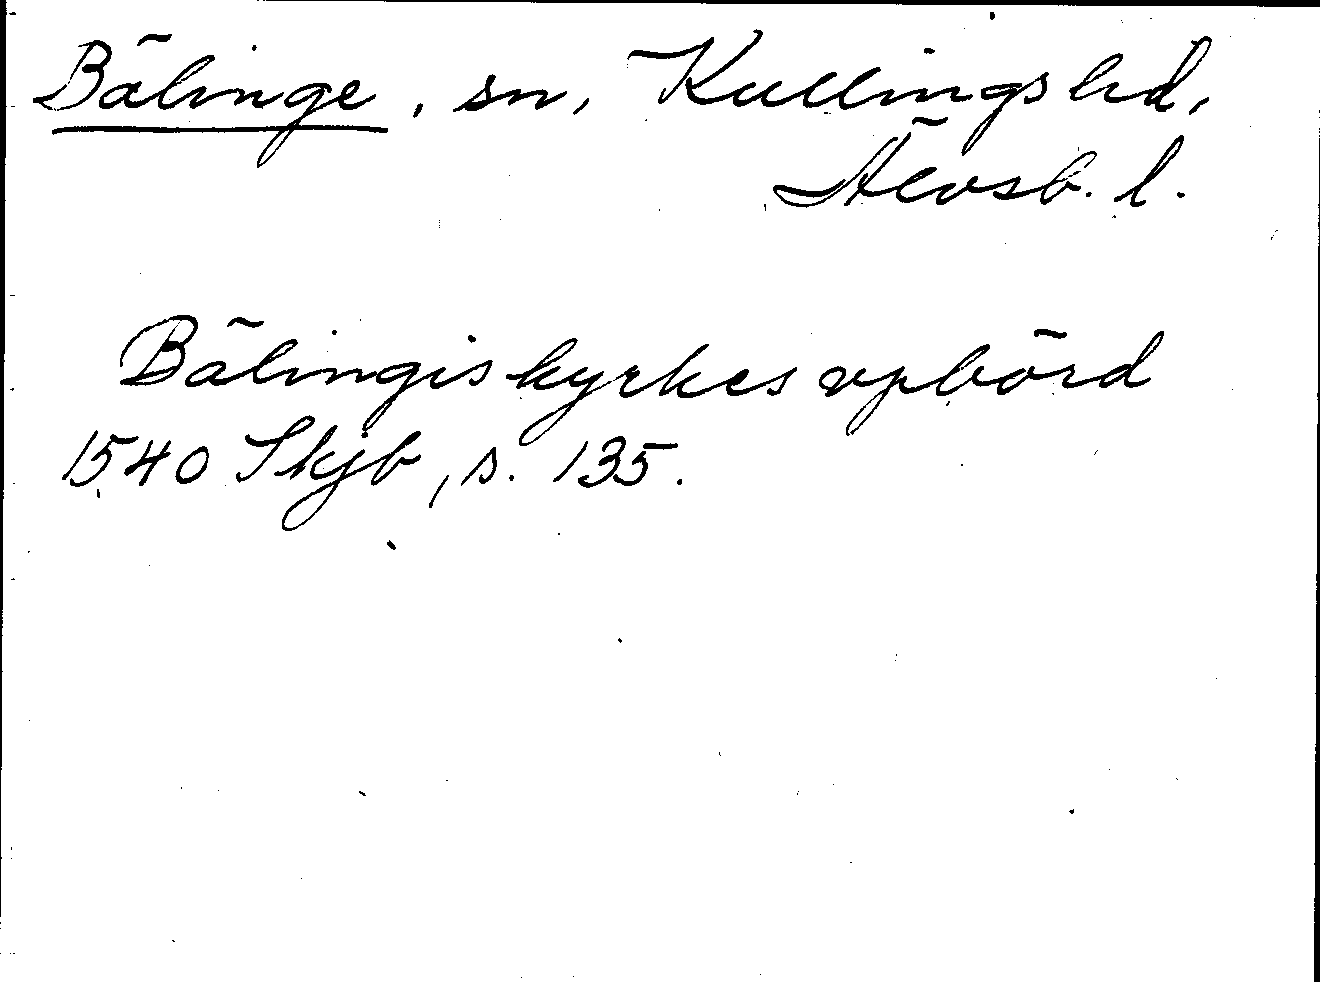 Bälinge, sn, Kullings hd,
Älvsb. l.
Bälingis kyrkes vpbörd
1540 Skjb, s. 135.